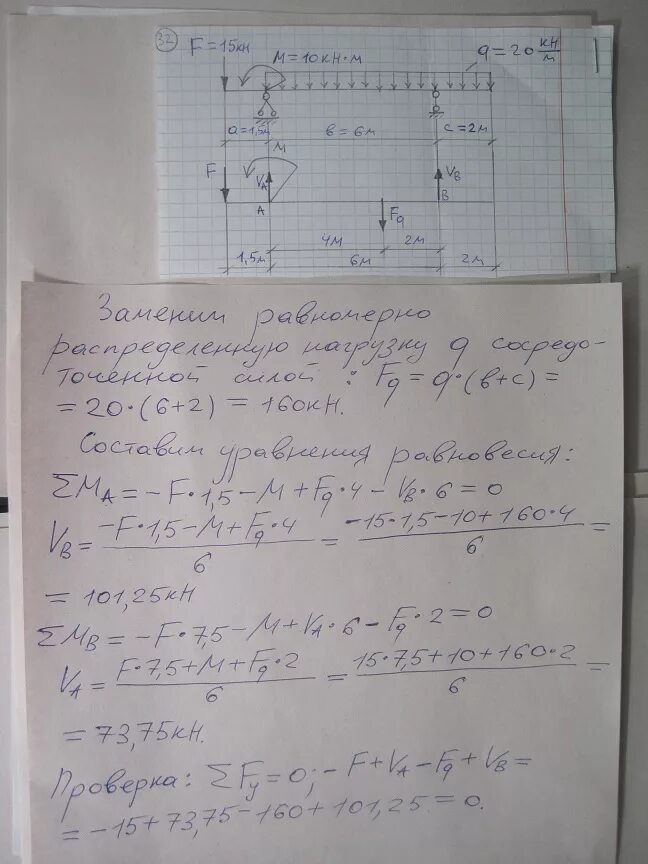 32
F = 15кН
M = 10кН·м
q = 20 кН/м
a = 1,5м
в = 6м
c = 2м
M
F
V_A
V_B
A
B
F_q
4м
2м
1,5м
6м
2м
Заменим равномерно
распределенную нагрузку q сосредо-
точенной силой : F_q = q·(в+c) =
= 20·(6+2) = 160кН.
Составим уравнения равновесия:
ΣM_A = -F·1,5 - M + F_q·4 - V_B·6 = 0
V_B = (-F·1,5 - M + F_q·4)/6 = (-15·1,5 - 10 + 160·4)/6 =
= 101,25кН
ΣM_B = -F·7,5 - M + V_A·6 - F_q·2 = 0
V_A = (F·7,5 + M + F_q·2)/6 = (15·7,5 + 10 + 160·2)/6 =
= 73,75кН.
Проверка: ΣF_y = 0; - F + V_A - F_q + V_B =
= -15 + 73,75 - 160 + 101,25 = 0.